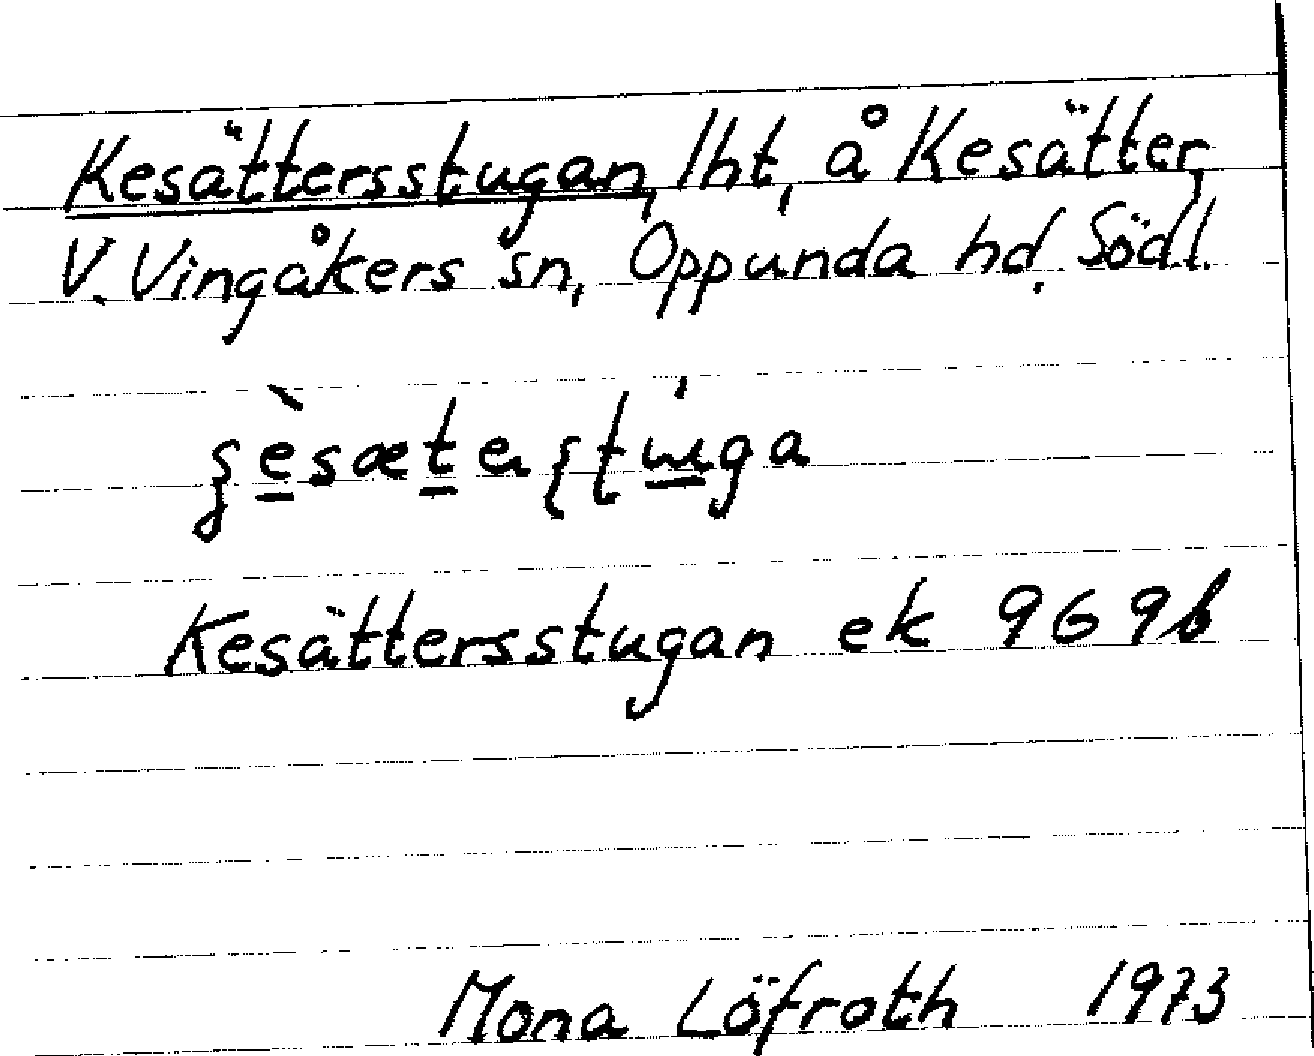 Kesättersstugan, lht, å Kesätter,
V. Vingåkers sn, Oppunda hd. Södl.
Kesättersstugan ek 969b
Mona Löfroth 1973